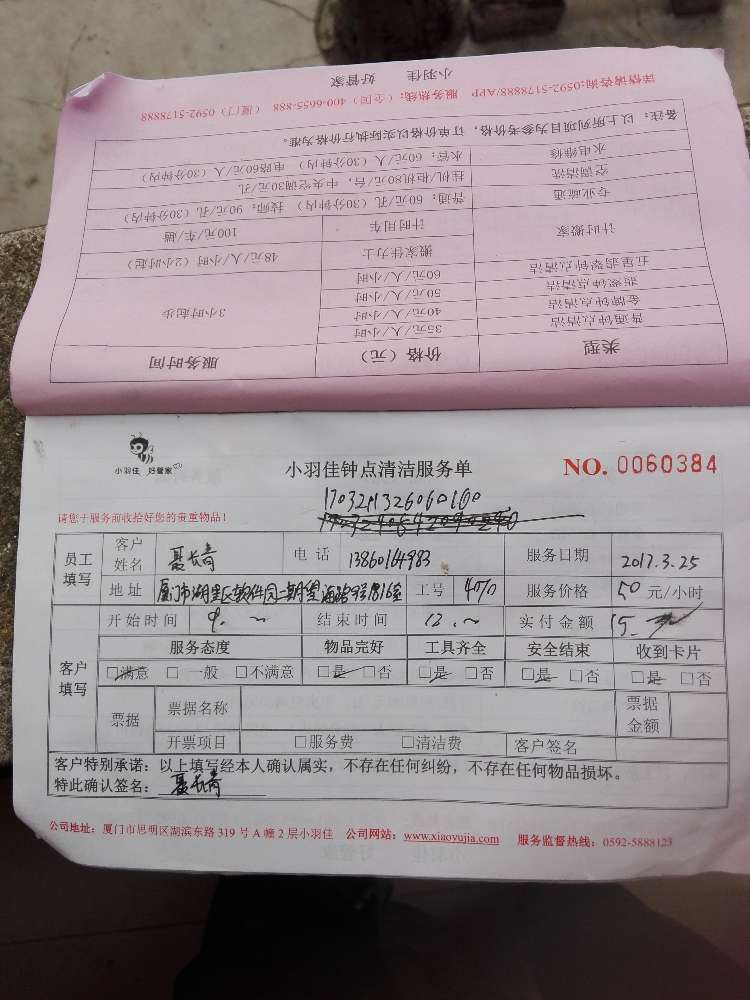 小羽佳 好管家
详情请咨询:0592-5178888/APP 服务热线:(全国)400-6655-888 (厦门)0592-5178888
类型 价格(元) 服务时间
普通钟点清洁 35元/人/小时 3小时起步
金牌钟点清洁 40元/人/小时
翡翠钟点清洁 50元/人/小时
五星翡翠钟点清洁 60元/小时
计时搬家 搬家佳力士 48元/人/小时(2小时起)
计时用车 100元/车/趟
专业疏通 普通:60元/孔(30分钟内) 技师:90元/孔(30分钟内)
空调清洗 挂机/柜机80元/台,中央空调30元/孔
水电维修 水管:60元/人(30分钟内) 电路60元/人(30分钟内)
备注:以上所列项目为参考价格,订单价格以实际执行价格为准。
小羽佳 好管家
小羽佳钟点清洁服务单
NO. 0060384
请您于服务前收拾好您的贵重物品!
员工填写
客户姓名 聂长青 电话 13860164983 服务日期 2017.3.25
地址 工号 服务价格 50 元/小时
客户填写
开始时间 9. 结束时间 12. 实付金额
服务态度 物品完好 工具齐全 安全结束 收到卡片
□满意 □一般 □不满意 □是 □否 □是 □否 □是 □否 □是 □否
票据 票据名称 票据金额
开票项目 □服务费 □清洁费 客户签名
客户特别承诺:以上填写经本人确认属实,不存在任何纠纷,不存在任何物品损坏。
特此确认签名: 聂长青
公司地址:厦门市思明区湖滨东路319号A幢2层小羽佳 公司网站:www.xiaoyujia.com 服务监督热线:0592-5888123